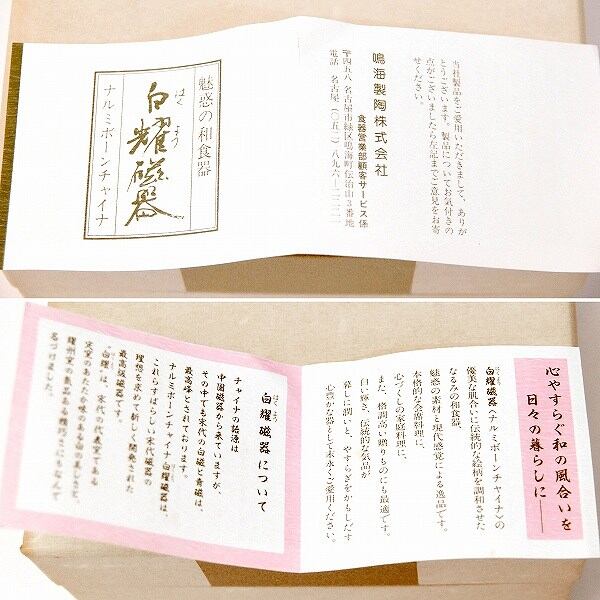 当社製品をご愛用いただきまして、ありが
とうございます。製品についてお気付きの
点がございましたら左記までご意見をお寄
せください。
鳴海製陶株式会社
食器営業部顧客サービス係
〒四五八 名古屋市緑区鳴海町伝治山3番地
電話 名古屋(〇五二)八九六―二二二一
魅惑の和食器
はくよう
白耀磁器
ナルミボーンチャイナ
心やすらぐ和の風合いを
日々の暮らしに――
白耀磁器〈ナルミボーンチャイナ〉の
優美な肌合いに伝統的な絵柄を調和させた
なるみの和食器。
魅惑の素材と現代感覚による逸品です。
本格的な会席料理に、
心づくしの家庭料理に、
また、格調高い贈りものにも最適です。
白い輝き、伝統的な気品が
暮しに潤いと、やすらぎをかもしだす
心豊かな器として末永くご愛用ください。
はくよう
白耀磁器について
チャイナの語源は
中国磁器から来ていますが、
その中でも宋代の白磁と青磁は、
最高峰とされております。
これらすばらしい宋代磁器の
理想を求めて新しく開発された
ナルミボーンチャイナ白耀磁器は、
最高級磁器です。
"白耀"は、宋代の代表窯である
定窯のあたたか味のある白の美しさと、
耀州窯の気品ある精巧さにちなんで
名づけました。